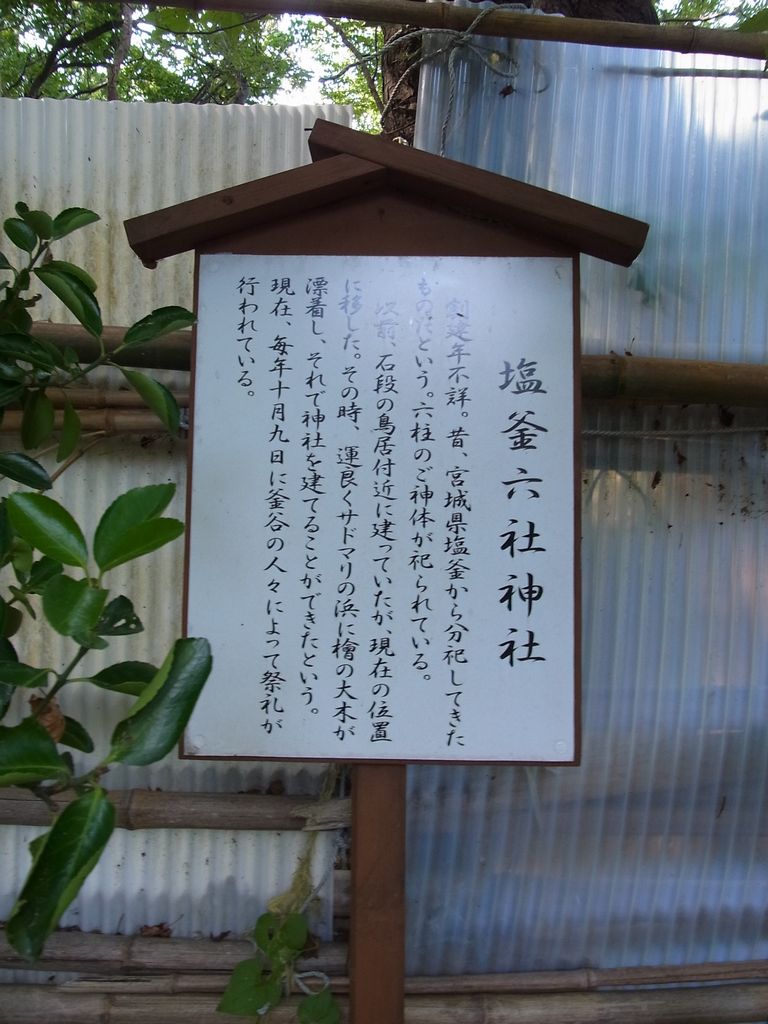 塩釜六社神社
創建年不詳。昔、宮城県塩釜から分祀してきた
ものだという。六柱のご神体が祀られている。
以前、石段の鳥居付近に建っていたが、現在の位置
に移した。その時、運良くサドマリの浜に檜の大木が
漂着し、それで神社を建てることができたという。
現在、毎年十月九日に釜谷の人々によって祭礼が
行われている。